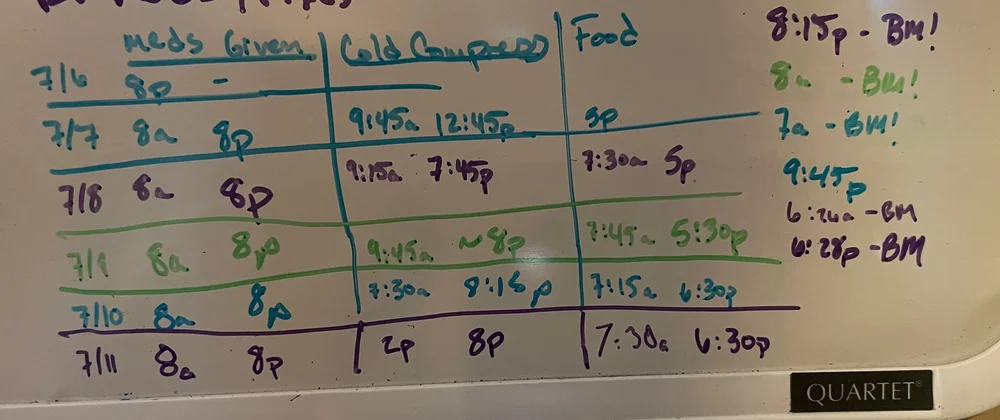 Meds Given Cold Compress Food
7/6 8p -
7/7 8a 8p 9:45a 12:45p 5p
7/8 8a 8p 9:15a 7:45p 7:30a 5p
7/9 8a 8p 9:45a ~8p 7:45a 5:30p
7/10 8a 8p 7:30a 8:15p 7:15a 6:30p
7/11 8a 8p 2p 8p 7:30a 6:30p
8:15p - BM!
8a - BM!
7a - BM!
9:45p
6:26a - BM
6:28p - BM
QUARTET®